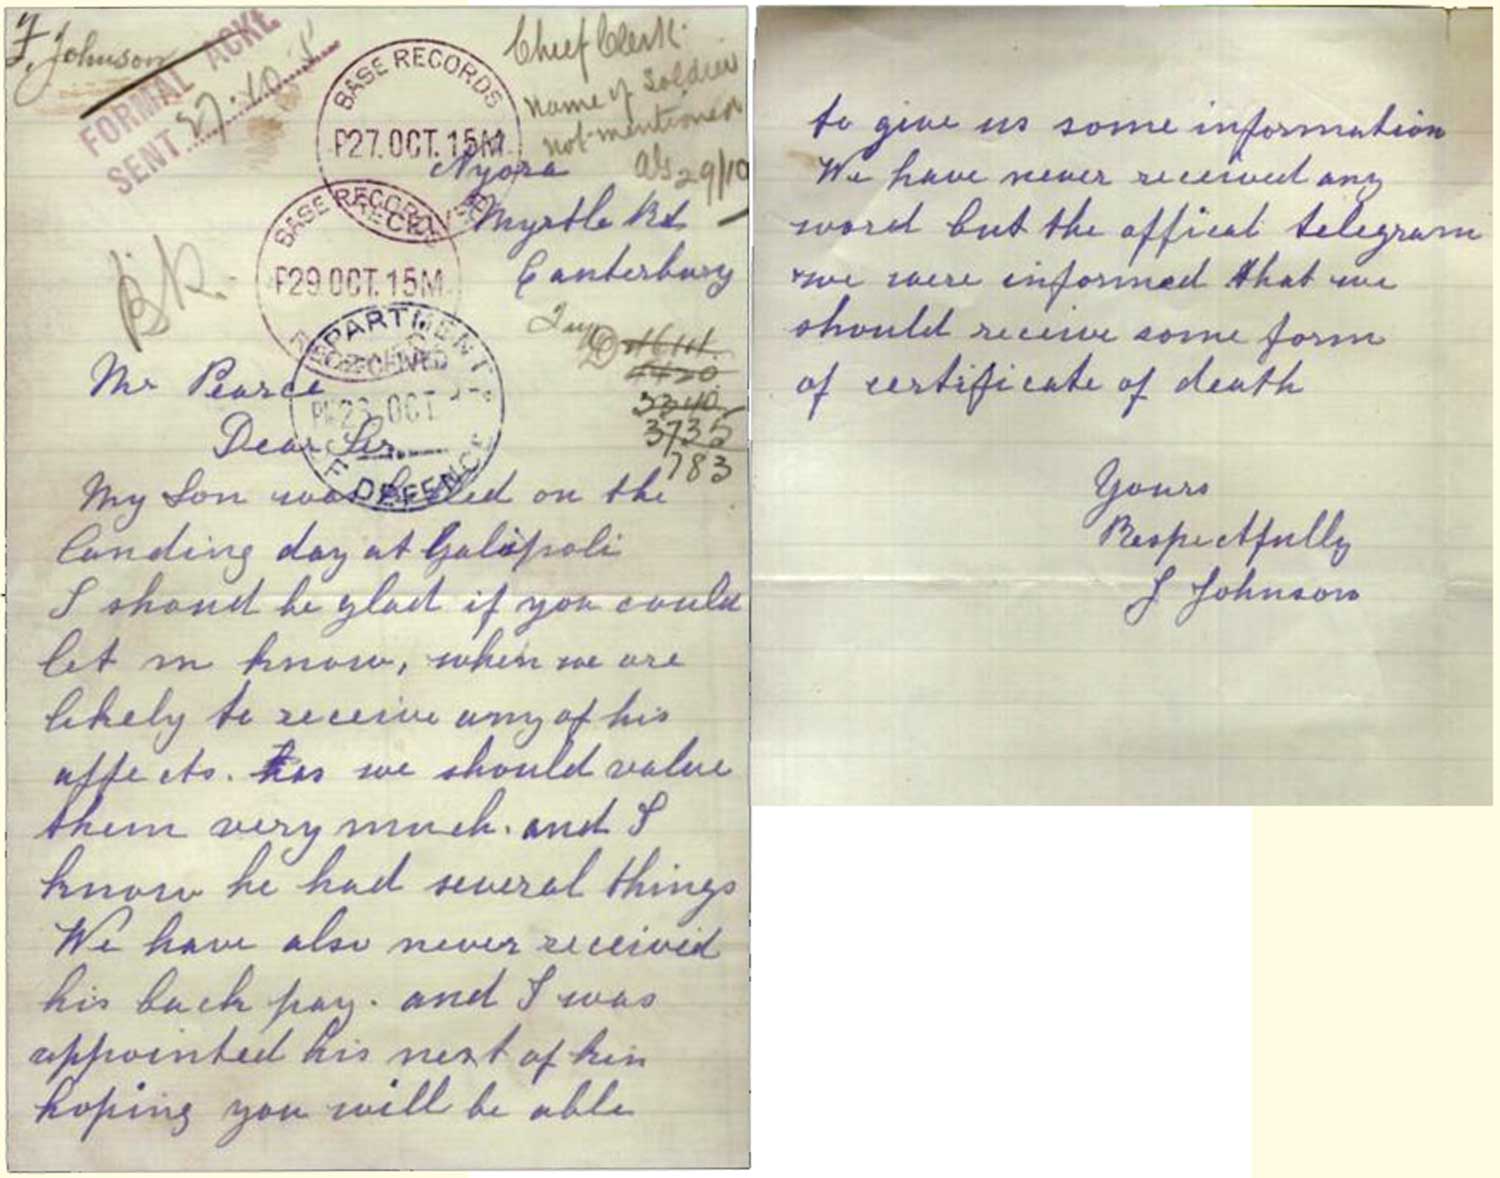 F. Johnson
FORMAL ACKE
SENT 27.10.
BASE RECORDS
P27.OCT.15M
Chief Clerk.
name of soldier
not mentioned
29/10
BASE RECORDS
P29.OCT.15M
RECEIVED
B.R.
Nyora
Myrtle Rd
Canterbury
DEPARTMENT
RECEIVED
OCT
OF DEFENCE
4420.
3340.
3735
783
Mr Pearce
Dear Sir.
My Son was killed on the
landing day at Galipoli
I shoud be glad if you could
let m know, when we are
likely to receive any of his
affects. as we should value
them very much. and I
know he had several things
We have also never received
his back pay. and I was
appointed his next of kin
hoping you will be able
to give us some information
We have never received any
word but the offical telegram
we were informed that we
should receive some form
of certificate of death
Yours
Respectfully
J Johnson